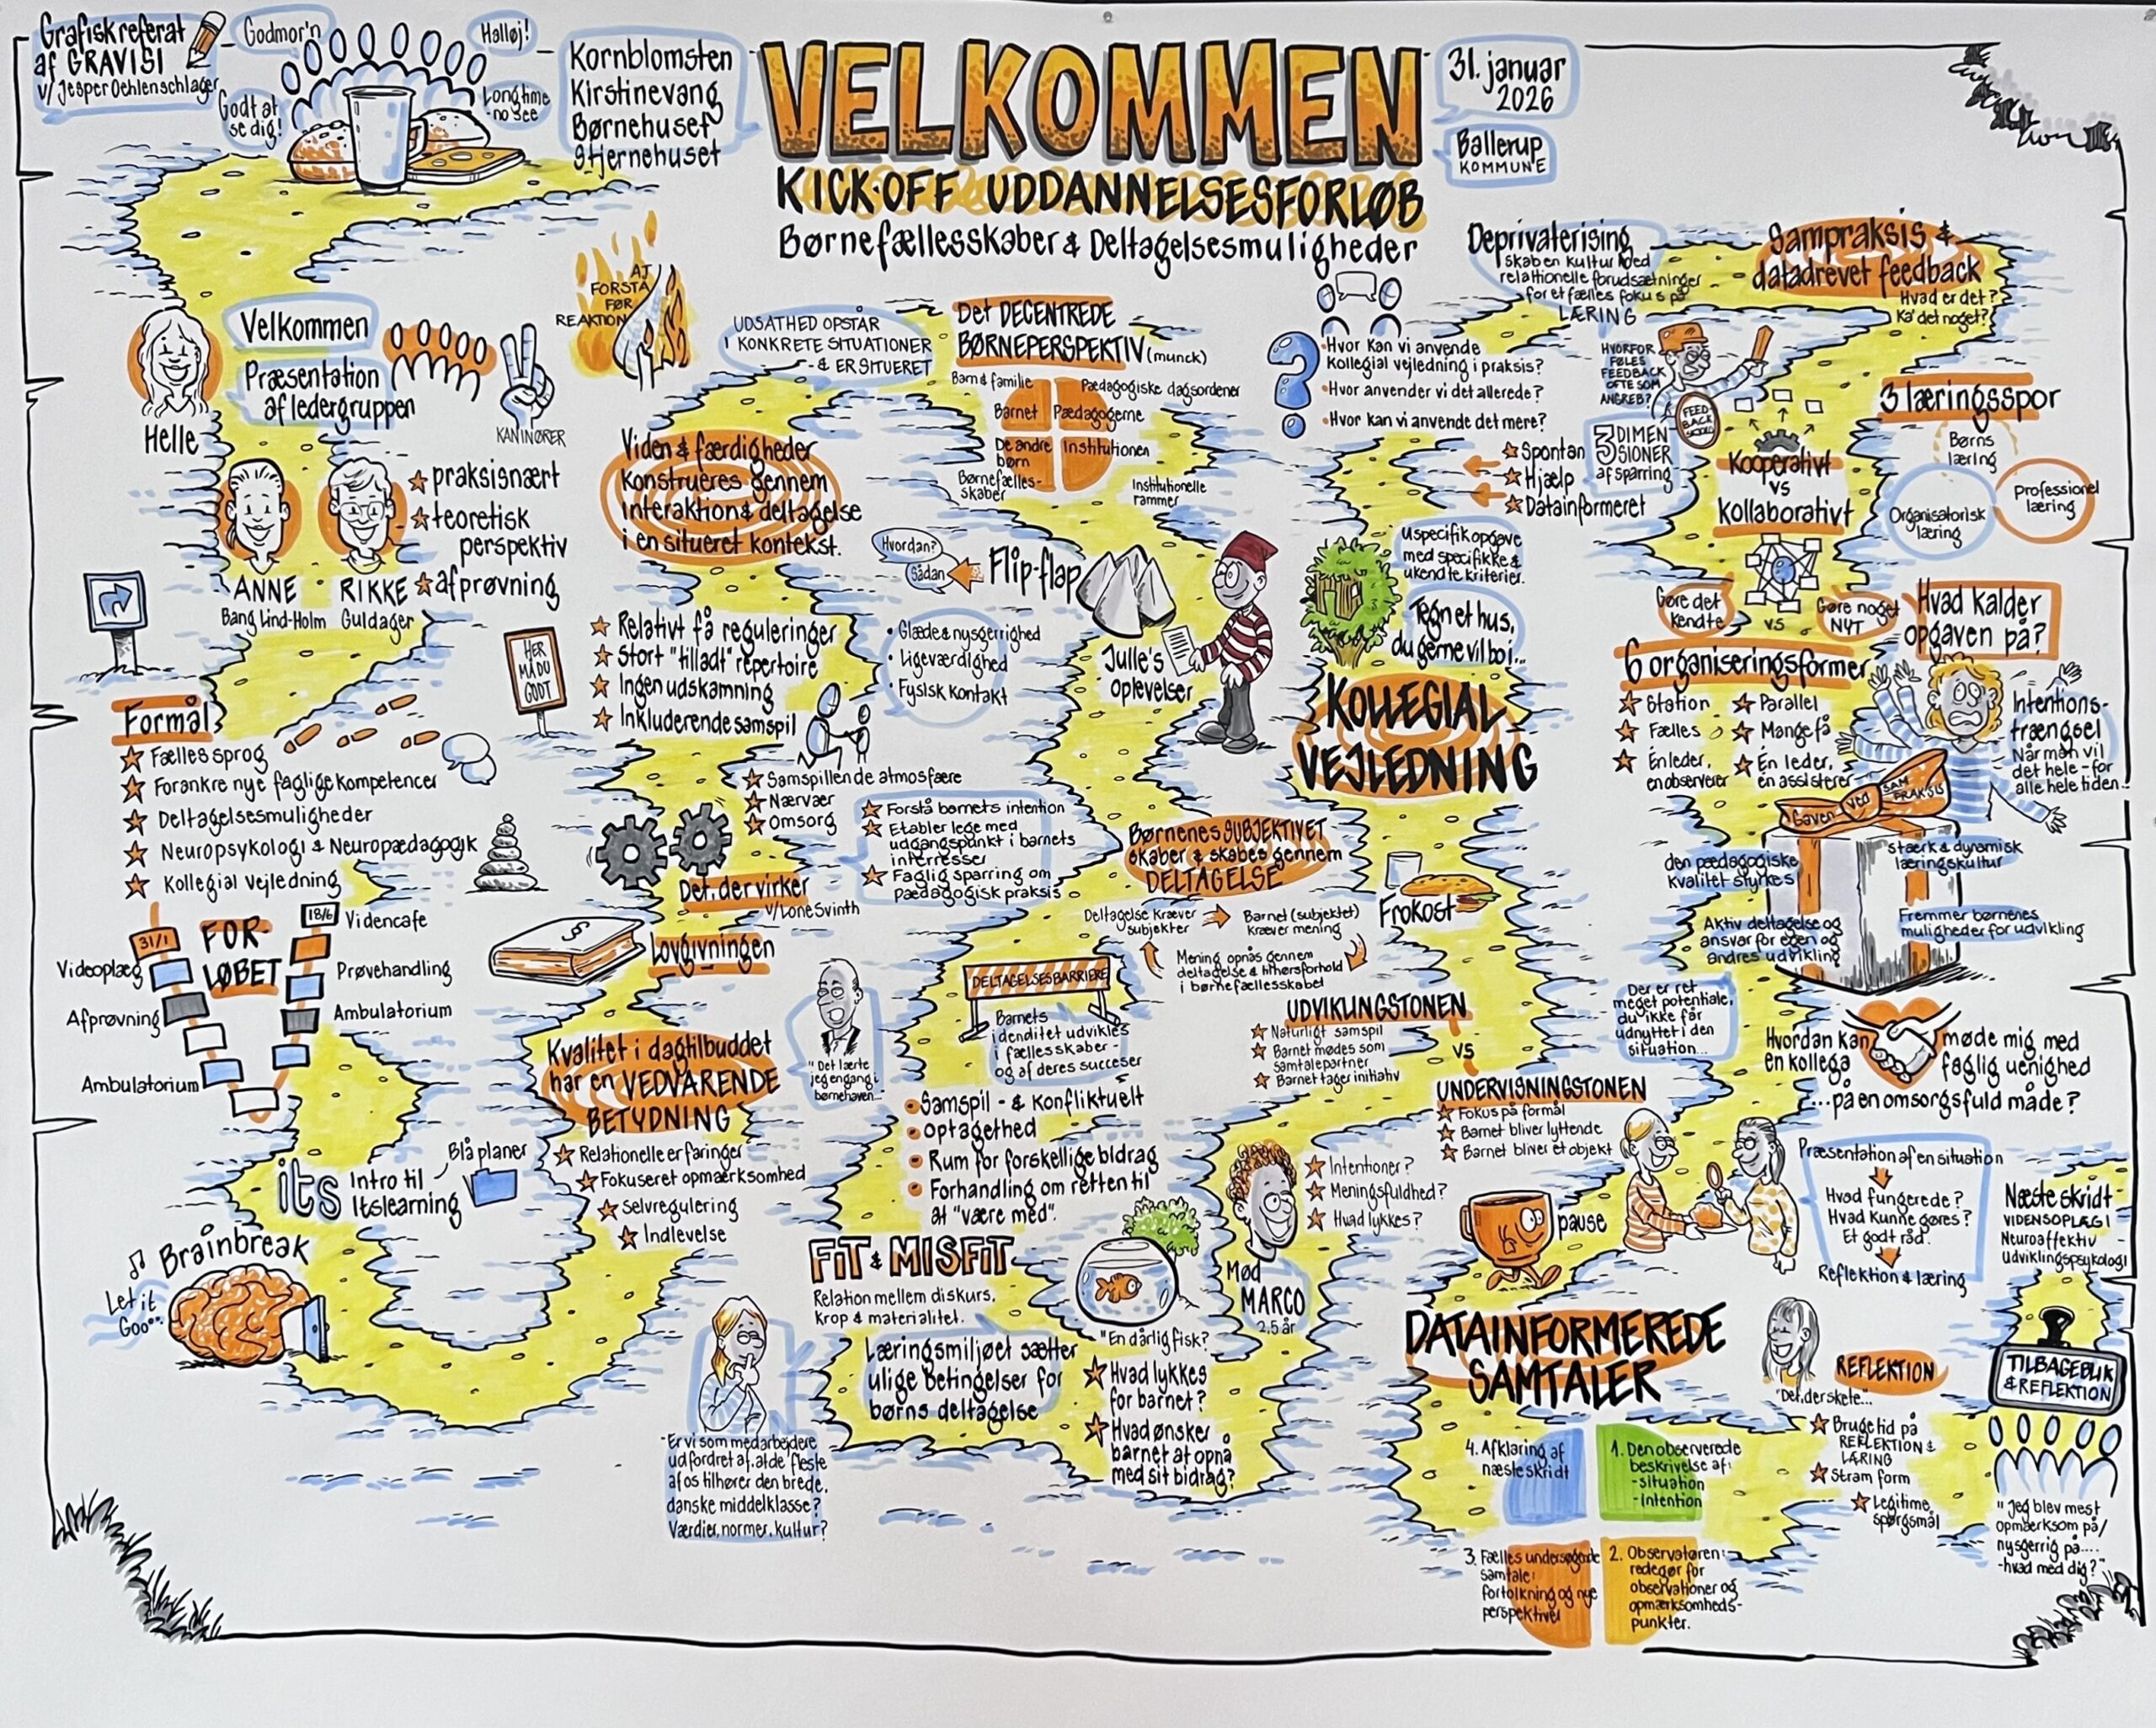 Grafisk referat
af GRAVISI
v/ Jesper Oehlenschlager
Godmor'n
Halløj!
Godt at
se dig!
Long time
-no see
Kornblomsten
Kirstinevang
Børnehuset
Stjernehuset
VELKOMMEN
KICK-OFF UDDANNELSESFORLØB
Børnefællesskaber & Deltagelsesmuligheder
31. januar
2026
Ballerup
KOMMUNE
Helle
Velkommen
Præsentation
af ledergruppen
KANINØRER
ANNE
Bang Lind-Holm
RIKKE
Guldager
praksisnært
teoretisk
perspektiv
afprøvning
Formål
Fælles sprog
Forankre nye faglige kompetencer
Deltagelsesmuligheder
Neuropsykologi & Neuropædagogik
Kollegial vejledning
HER
MÅ DU
GODT
FOR
LØBET
31/1
18/6
Videncafe
Videoplæg
Prøvehandling
Afprøvning
Ambulatorium
Ambulatorium
its
Intro til
Itslearning
Blå planer
Brainbreak
Let it
Goo...
AT
FORSTÅ
FØR
REAKTION
Viden & færdigheder
konstrueres gennem
interaktion & deltagelse
i en situeret kontekst.
Relativt få reguleringer
Stort "tilladt" repertoire
Ingen udskamning
Inkluderende samspil
Samspillende atmosfære
Nærvær
Omsorg
Forstå barnets intention
Etabler lege med
udgangspunkt i barnets
interresser
Faglig sparring om
pædagogisk praksis
Det, der virker
v/Lone Svinth
§
Lovgivningen
Kvalitet i dagtilbuddet
har en VEDVARENDE
BETYDNING
Relationelle erfaringer
Fokuseret opmærksomhed
Selvregulering
Indlevelse
"Det lærte
jeg engang i
børnehaven..."
UDSATHED OPSTÅR
I KONKRETE SITUATIONER
- & ER SITUERET
Det DECENTREDE
BØRNEPERSPEKTIV (munck)
Barn & familie
Pædagogiske dagsordener
Barnet
Pædagogerne
De andre
børn
Institutionen
Børnefælles-
skaber
Institutionelle
rammer
Hvordan?
Sådan
Flip-flap
Glæde & nysgerrighed
Ligeværdighed
Fysisk kontakt
Julle's
oplevelser
Børnenes SUBJEKTIVITET
skaber & skabes gennem
DELTAGELSE
Deltagelse kræver
subjekter
Barnet (subjektet)
kræver mening
Mening opnås gennem
deltagelse & tilhørsforhold
i børnefællesskabet
DELTAGELSESBARRIERE
Barnets
idenditet udvikles
i fællesskaber -
og af deres succeser
Samspil - & konfliktuelt
optagethed
Rum for forskellige bidrag
Forhandling om retten til
at "være med".
FIT & MISFIT
Relation mellem diskurs,
krop & materialitet.
Læringsmiljøet sætter
ulige betingelser for
børns deltagelse
"Er vi som medarbejdere
udfordret af, at de fleste
af os tilhører den brede,
danske middelklasse?
Værdier, normer, kultur?
"En dårlig fisk?
Hvad lykkes
for barnet?
Hvad ønsker
barnet at opnå
med sit bidrag?
Mød
MARCO
2,5 år
Intentioner?
Meningsfuldhed?
Hvad lykkes?
UDVIKLINGSTONEN
Naturligt samspil
Barnet mødes som
samtalepartner
Barnet tager initiativ
vs
UNDERVISNINGSTONEN
Fokus på formål
Barnet bliver lyttende
Barnet bliver et objekt
Frokost
pause
Hvor kan vi anvende
Kollegial vejledning i praksis?
Hvor anvender vi det allerede?
Hvor kan vi anvende det mere?
Spontan
Hjælp
Datainformeret
3 DIMEN
SIONER
af sparring
uspecifik opgave
med specifikke &
ukendte kriterier.
Tegn et hus,
du gerne vil bo i...
KOLLEGIAL
VEJLEDNING
Deprivaterising
skab en kultur med
relationelle forudsætninger
for et fælles fokus på
LÆRING
Sampraksis &
datadrevet feedback
Hvad er det?
Ka' det noget?
HVORFOR
FØLES
FEEDBACK
OFTE SOM
ANGREB?
FEED
BACK
SKJOLD
3 læringsspor
Børns
læring
Organisatorisk
læring
Professionel
læring
Kooperativt
vs
kollaborativt
Gøre det
kendte
vs
Gøre noget
NYT
Hvad kalder
opgaven på?
6 organiseringsformer
Station
Parallel
Fælles
Mange få
Én leder,
en observerer
Én leder,
én assisterer
Intentions-
trængsel
Når man vil
det hele - for
alle hele tiden...
Gaven
ved
SAM
PRAKSIS
stærk & dynamisk
læringskultur
den pædagogiske
kvalitet styrkes
Aktiv deltagelse og
ansvar for egen og
andres udvikling
Fremmer børnenes
muligheder for udvikling
Der er ret
meget potentiale,
du ikke får
udnyttet i den
situation...
Hvordan kan
en kollega
møde mig med
faglig uenighed
...på en omsorgsfuld måde?
Præsentation af en situation
Hvad fungerede?
Hvad kunne gøres?
Et godt råd.
Reflektion & læring
Næste skridt
VIDENSOPLÆG I
Neuroaffektiv
udviklingspsykologi
DATAINFORMEREDE
SAMTALER
4. Afklaring af
næste skridt
1. Den observerede
beskrivelse af:
- situation
- Intention
3. Fælles undersøgende
samtale:
fortolkning og nye
perspektiver
2. Observatøren:
redegør for
observationer og
opmærksomheds-
punkter.
REFLEKTION
"Det, der skete"...
Bruge tid på
REFLEKTION &
LÆRING
Stram form
Legitime
spørgsmål
TILBAGEBLIK
& REFLEKTION
"Jeg blev mest
opmærksom på/
nysgerrig på....
-hvad med dig?"